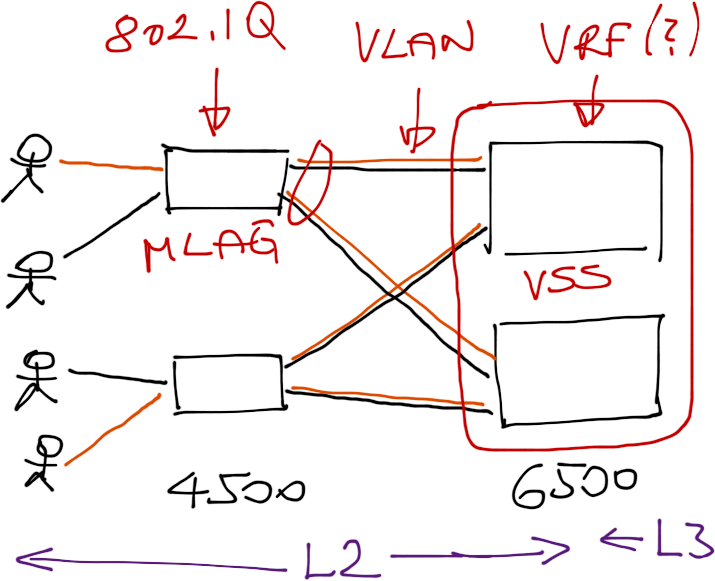 802.1Q VLAN VRF(?)
MLAG
VSS
4500 6500
L2 L3